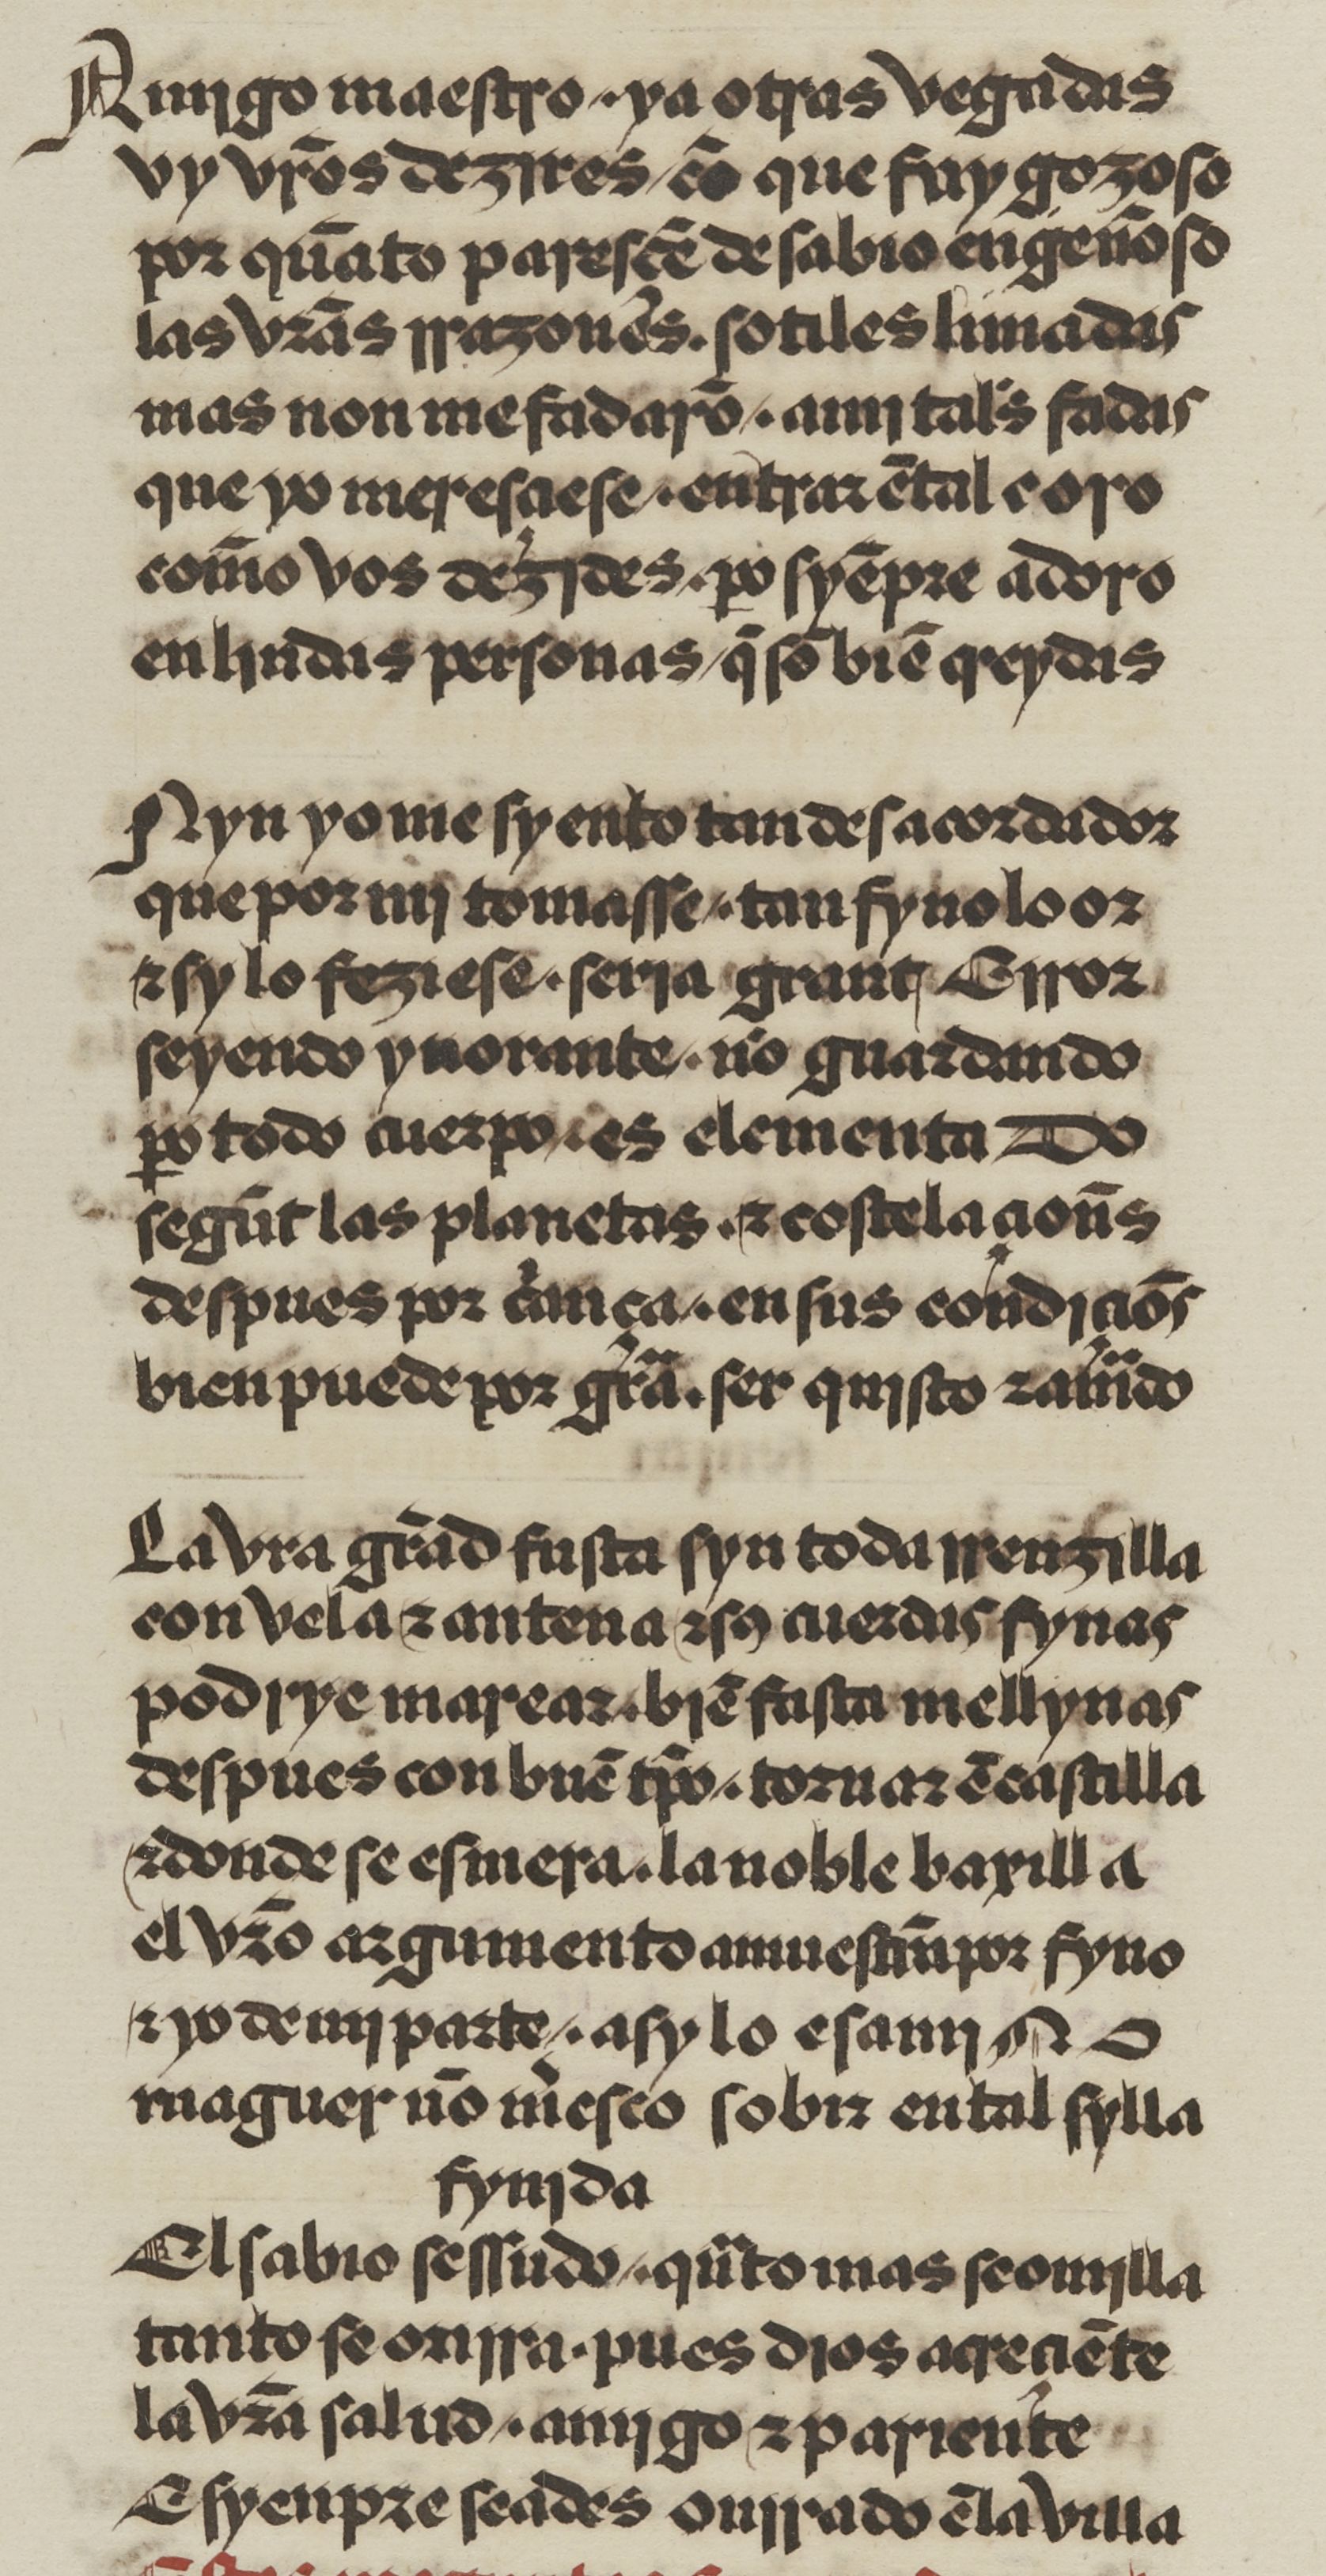 Amigo maestro / · ya otras vegadas
vy vr̃os dezires / cõ que fuy gozoso
por quãto paresçẽ de sabio engeñoso
las vrãs rrazones · sotiles limadas
mas non me fadarõ / · a mj tal's fadas
que yo meresçiese / · entrar ẽ tal coro
com̃o vos dezides / · ꝑo syẽpre adoro
en lindas personas / q̃ sõ biẽ qreydas

Nyn yo me syento tan desacordador
que por mj tomasse / · tan fyno loor
⁊ sy lo feziese / · serja grant Error
seyendo ynorante / · nõ guardando
ꝑo todo cuerpo / · es elementaDo
segũt las planetas · ⁊ costelaçioñs
despues por c̃ança / · en sus condiçiõs
bien puede por gr̃a · ser quisto ⁊ am̃do

La vra grãd fusta syn toda rrenzilla
con vela ⁊ antena ⁊ sꝯ cuerdas fynas
podrrye marear · bjẽ fasta mellynas
despues con buẽ tp̃o / · tornar ẽ castilla
⁊ donde se esmera · la noble baxilla
el vr̃o argumento amuestrã por fyno
⁊ yo de mj parte / · asy lo esamjNO
maguer nõ m̃esco sobir en tal sylla
fynjda
El sabio sessudo / · qũto mas se omjlla
tanto se onrra · pues dios acreçiẽte
la vrã salud / · amjgo ⁊ pariente
E syenpre seades onrrado ẽ la villa